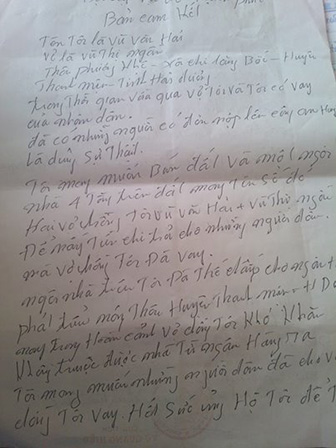 Bản cam Kết
Tên Tôi là vũ văn Hải
vợ là vũ Thị ngân
Thôn phương Khê - xã chi Lăng Bắc - Huyện
Thanh miện - Tỉnh Hải dương
trong Thời gian vừa qua vợ Tôi và Tôi có vay
của nhân dân.
đã có những người có đơn nộp lên công an Huy
Là đúng Sự Thật.
Tôi mong muốn Bán đất và một ngôi
nhà 4 Tầng trên đất mang tên Sổ đỏ
Hai vợ chồng Tôi vũ văn Hải + vũ Thị ngân
Để Lấy Tiền chi trả cho những người dân.
mà vợ chồng Tôi Đã vay.
ngôi nhà trên Tôi Đã Thế chấp cho ngân h
phát triển nông Thôn Huyện Thanh miện - H D
mong trong Hoàn cảnh vợ chồng Tôi Khó Khăn
không được nhà Từ ngân Hàng Ra
Tôi mong muốn những người dân đã cho vợ
chồng Tôi vay. Hết Sức ủng Hộ Tôi để T